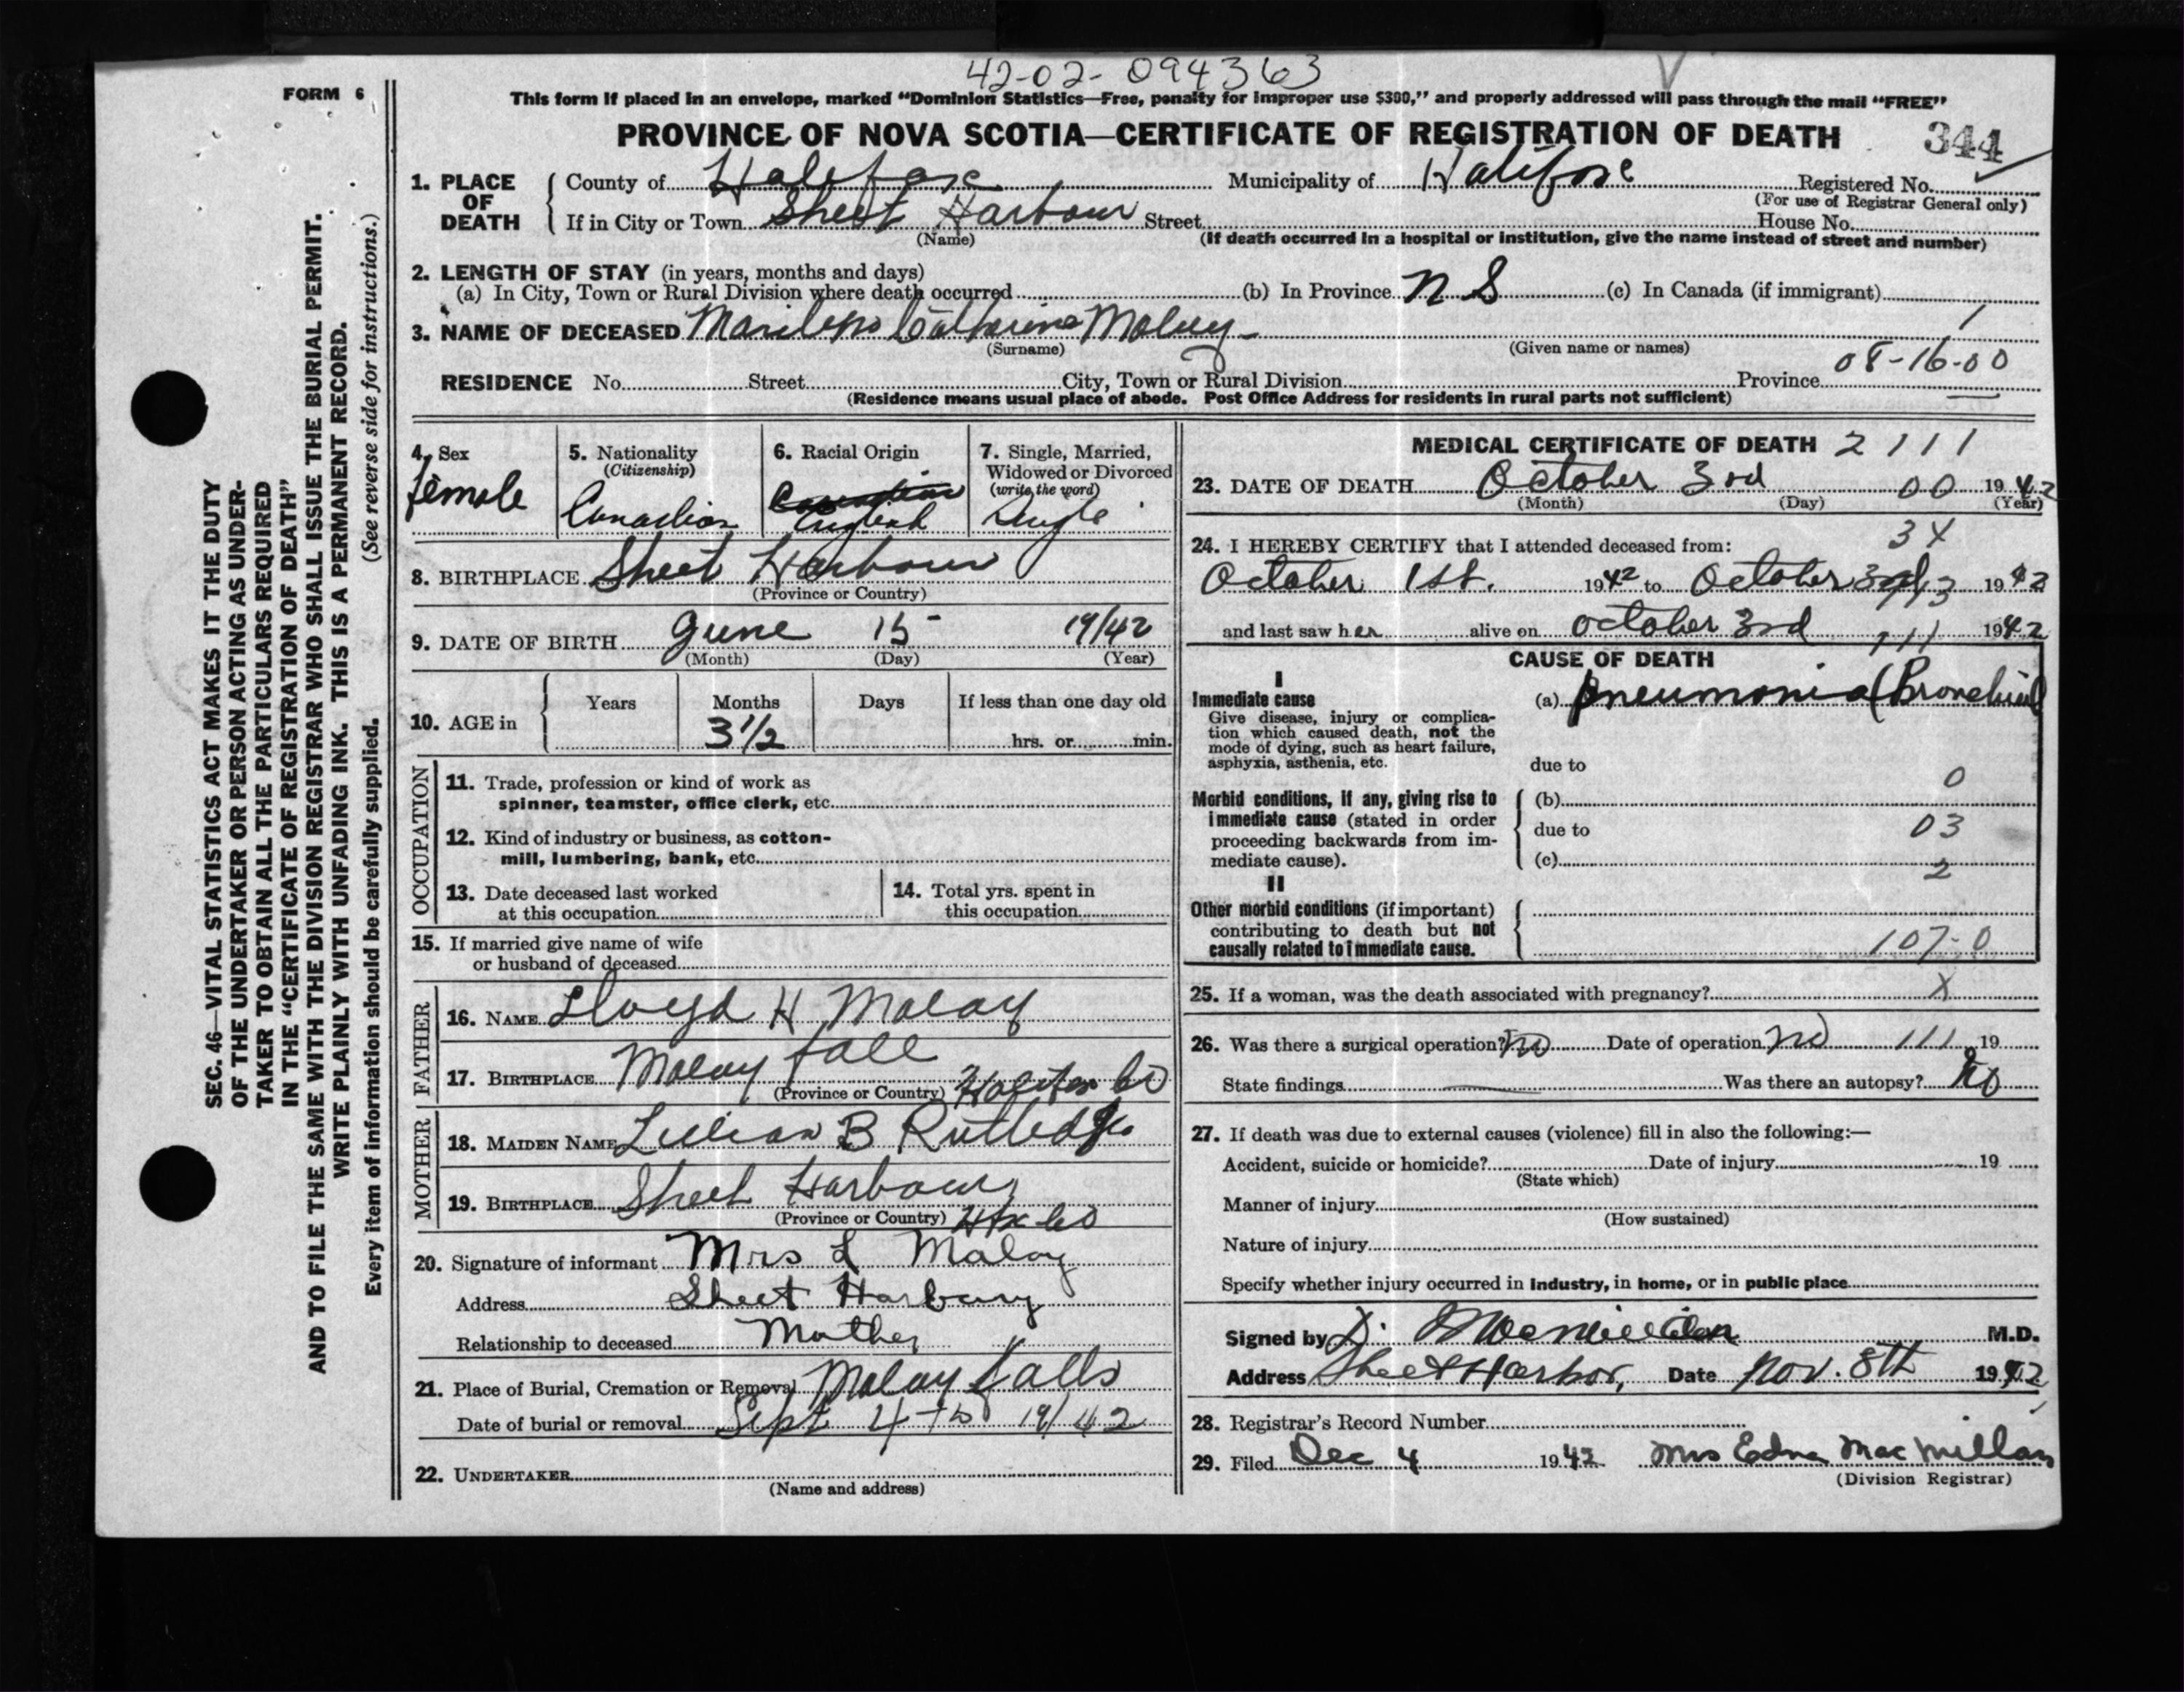 42-02-094363
FORM 6
This form if placed in an envelope, marked “Dominion Statistics—Free, penalty for improper use $300,” and properly addressed will pass through the mail “FREE”
PROVINCE OF NOVA SCOTIA—CERTIFICATE OF REGISTRATION OF DEATH
344
1. PLACE OF DEATH
County of Halifax Municipality of Halifax Registered No.
(For use of Registrar General only)
If in City or Town Sheet Harbour Street House No.
(Name) (If death occurred in a hospital or institution, give the name instead of street and number)
2. LENGTH OF STAY (in years, months and days)
(a) In City, Town or Rural Division where death occurred (b) In Province N S (c) In Canada (if immigrant)
3. NAME OF DECEASED Catherine Malay 1
(Surname) (Given name or names)
08-16-00
RESIDENCE No. Street City, Town or Rural Division Province
(Residence means usual place of abode. Post Office Address for residents in rural parts not sufficient)
4. Sex
Female
5. Nationality
(Citizenship)
Canadian
6. Racial Origin
English
7. Single, Married, Widowed or Divorced
(write the word)
Single
8. BIRTHPLACE Sheet Harbour
(Province or Country)
9. DATE OF BIRTH June 15 19/42
(Month) (Day) (Year)
10. AGE in Years Months Days If less than one day old
3 1/2 hrs. or min.
OCCUPATION
11. Trade, profession or kind of work as
spinner, teamster, office clerk, etc.
12. Kind of industry or business, as cotton-
mill, lumbering, bank, etc.
13. Date deceased last worked
at this occupation
14. Total yrs. spent in
this occupation
15. If married give name of wife
or husband of deceased
FATHER
16. NAME Lloyd H Malay
17. BIRTHPLACE Malay fall
(Province or Country) Halifax Co
MOTHER
18. MAIDEN NAME Lillian B Rutledge
19. BIRTHPLACE Sheet Harbour
(Province or Country) Hfx Co
20. Signature of informant Mrs L Malay
Address Sheet Harbour
Relationship to deceased Mother
21. Place of Burial, Cremation or Removal Malay falls
Date of burial or removal Sept 4th 19/42
22. UNDERTAKER
(Name and address)
MEDICAL CERTIFICATE OF DEATH 2111
23. DATE OF DEATH October 3rd 00 1942
(Month) (Day) (Year)
34
24. I HEREBY CERTIFY that I attended deceased from:
October 1st. 1942 to October 3rd 1942
and last saw her alive on October 3rd 111 1942
CAUSE OF DEATH
I
Immediate cause
Give disease, injury or complica-
tion which caused death, not the
mode of dying, such as heart failure,
asphyxia, asthenia, etc.
(a) Pneumonia (Bronchial)
due to
0
Morbid conditions, if any, giving rise to
immediate cause (stated in order
proceeding backwards from im-
mediate cause).
(b)
due to 03
(c)
2
II
Other morbid conditions (if important)
contributing to death but not
causally related to immediate cause.
107-0
25. If a woman, was the death associated with pregnancy? X
26. Was there a surgical operation? No Date of operation No 111 19
State findings Was there an autopsy? No
27. If death was due to external causes (violence) fill in also the following:—
Accident, suicide or homicide? Date of injury 19
(State which)
Manner of injury
(How sustained)
Nature of injury
Specify whether injury occurred in industry, in home, or in public place
Signed by D. Macmillan M.D.
Address Sheet Harbor, Date Nov. 8th 1942
28. Registrar's Record Number
29. Filed Dec 4 1942 Mrs Edna MacMillan
(Division Registrar)
SEC. 46—VITAL STATISTICS ACT MAKES IT THE DUTY
OF THE UNDERTAKER OR PERSON ACTING AS UNDER-
TAKER TO OBTAIN ALL THE PARTICULARS REQUIRED
IN THE “CERTIFICATE OF REGISTRATION OF DEATH”
AND TO FILE THE SAME WITH THE DIVISION REGISTRAR WHO SHALL ISSUE THE BURIAL PERMIT.
WRITE PLAINLY WITH UNFADING INK. THIS IS A PERMANENT RECORD.
Every item of information should be carefully supplied. (See reverse side for instructions.)